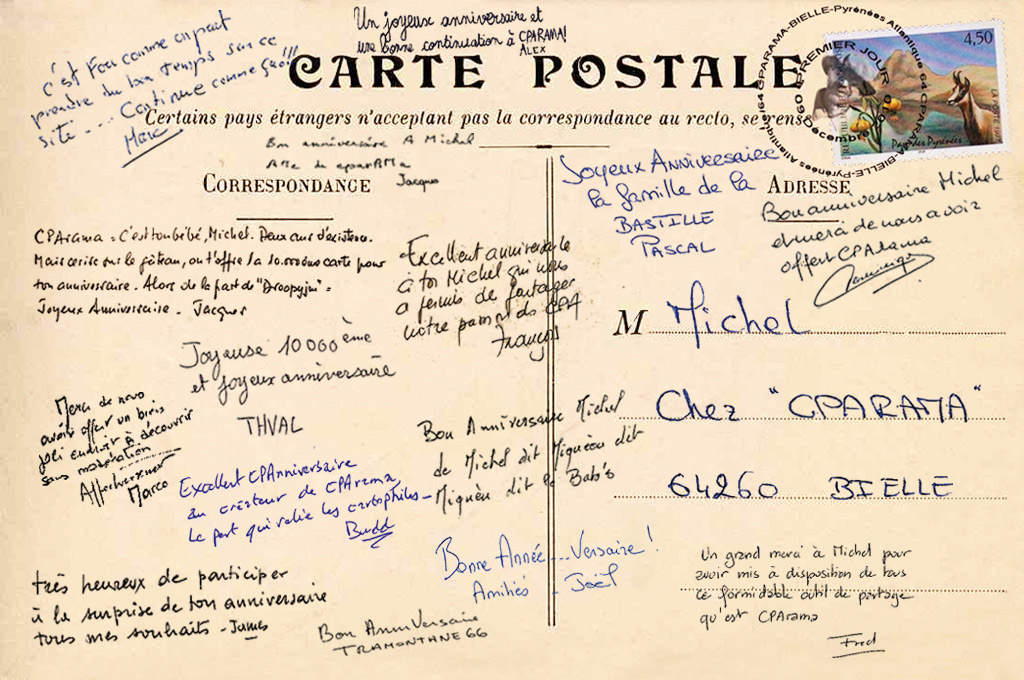 Un joyeux anniversaire et
une bonne continuation à CPARAMA!
ALEX
C'est fou comme on peut
prendre du bon temps sur ce
site.... Continue comme ça!!!
Marc
CARTE POSTALE
Certains pays étrangers n'acceptent pas la correspondance au recto, se rens
CPARAMA-BIELLE-Pyrénées Atlantique 64
PREMIER JOUR
Décembre
4,50
Pays des Pyrénées
Bon anniversaire A Michel
Jacques
CORRESPONDANCE
ADRESSE
CPArama = C'est ton bébé, Michel. Deux ans d'existence.
Mais cerise sur le gâteau, on t'offre la 10.000ème carte pour
ton anniversaire. Alors de la part de "Droopyjm" =
Joyeux Anniversaire - Jacques
Excellent anniversaire
à toi Michel qui nous
a permis de partager
notre passion des CPA
François
Joyeux Anniversaire
La famille de la
BASTILLE
PASCAL
Bon anniversaire Michel
et merci de nous avoir
offert CPArama
Dominique
Joyeuse 10000ème
et joyeux anniversaire
THVAL
Merci de nous
avoir offert un bien
joli endroit à découvrir
sans modération
Affectueusement
Marco
Excellent CPAnniversaire
au créateur de CPArama,
le port qui relie les cartophiles -
Budd
Bon Anniversaire Michel
de Michel dit Miquèou dit
Miquèu dit le Bab's
M Michel
Chez "CPARAMA"
64260 BIELLE
Bonne Année...Versaire!
Amitiés - Joël
très heureux de participer
à la surprise de ton anniversaire
tous mes souhaits - James
Bon AnniVersaire
TRAMONTANE66
Un grand merci à Michel pour
avoir mis à disposition de tous
ce formidable outil de partage
qu'est CPArama
Fred